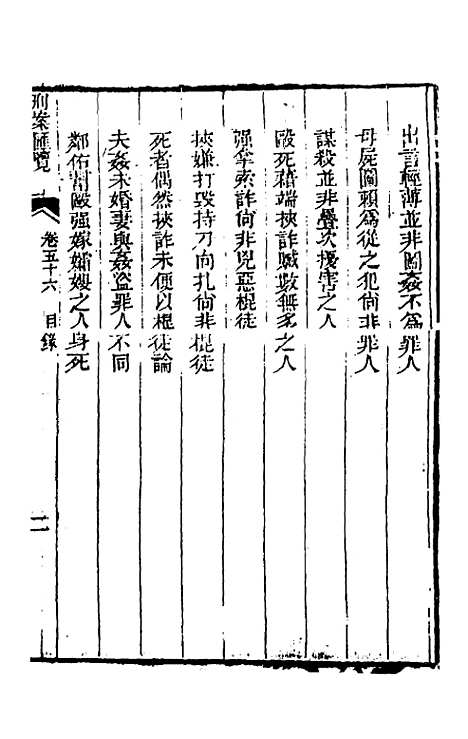 出言輕薄並非圖姦不爲罪人
母屍圖賴爲從之犯尙非罪人
謀殺並非疊次擾害之人
毆死藉端挾詐贓數無多之人
强拿索詐尙非兇惡棍徒
挾嫌打毀持刀向扎尙非棍徒
死者偶然挾詐未便以棍徒論
夫姦未婚妻與姦盜罪人不同
鄰佑幫毆强嫁孀嫂之人身死
刑案匯覽 卷五十六 目錄 二